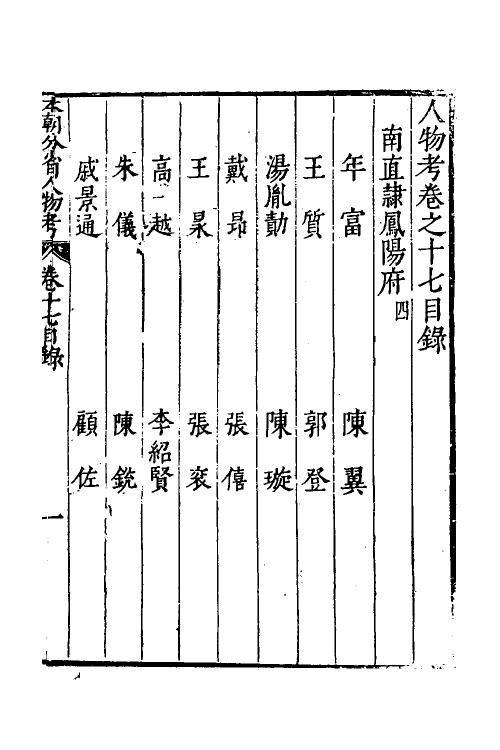 人物考卷之十七目錄
南直隸鳳陽府四
年富 陳翼
王質 郭登
湯胤勣 陳璇
戴昂 張僖
王杲 張袞
高越 李紹賢
朱儀 陳銳
戚景通 顧佐
本朝分省人物考 卷十七目錄 一